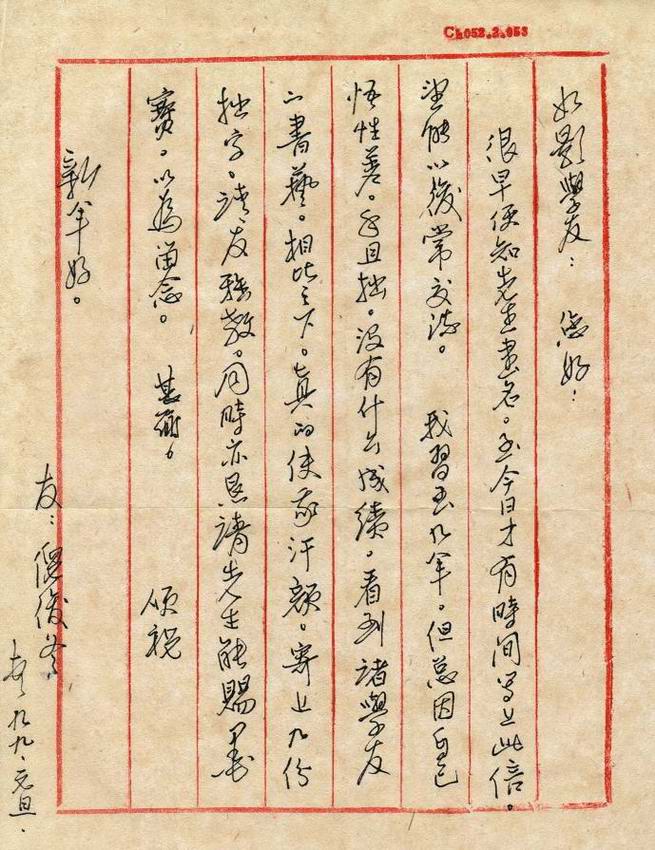 Ch052.2.053
如影學友：您好：
很早便知先生書名。至今日才有時间写上此信。
望能以後常交流。我習書九年。但总因自己
悟性差。手且拙。没有什么成績。看到諸學友
的書藝。相比之下。真的使我汗顔。寄上九份
拙字。請友雅教。同時亦恳請先生能賜墨
寶。以為留念。甚謝。頌祝
新年好。
友：俊冬
九九、元旦、